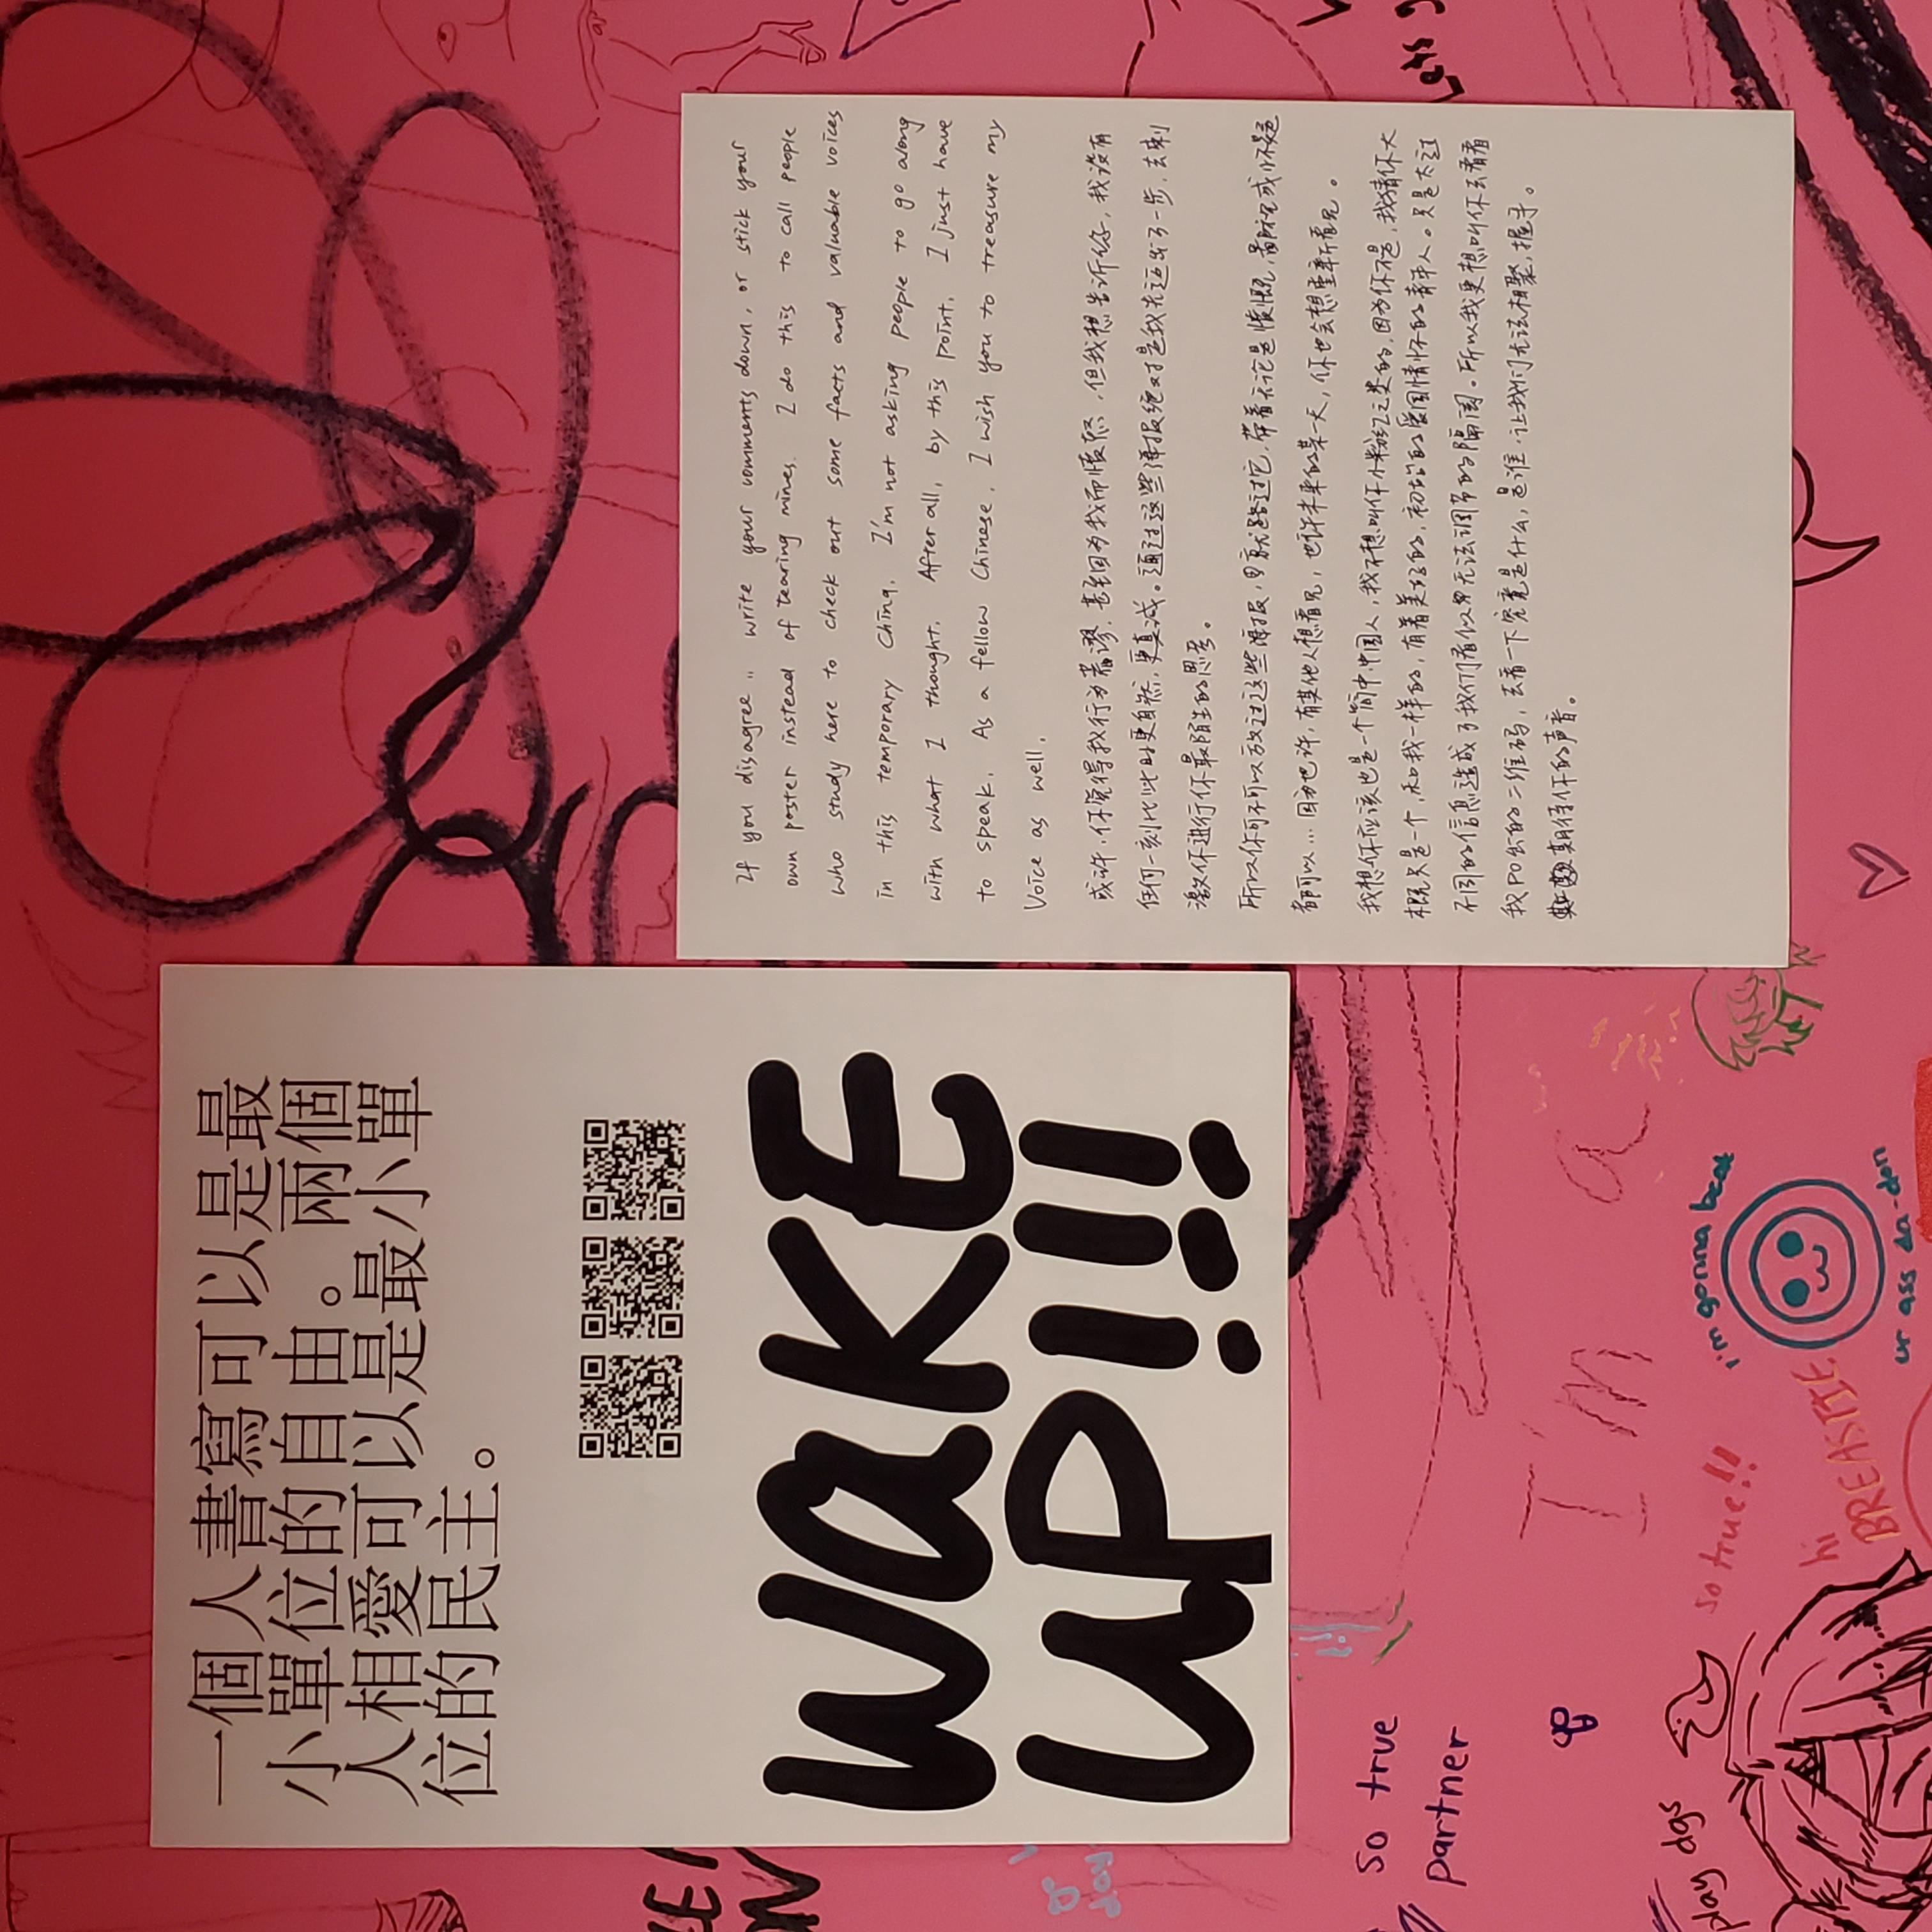 一個人書寫可以是最
小單位的自由。兩個
人相愛可以是最小單
位的民主。
WaKE
UPiii
If you disagree, write your comments down, or stick your
own poster instead of tearing mines. I do this to call people
who study here to check out some facts and valuable voices
in this temporary China. I'm not asking people to go along
with what I thought. After all, by this point, I just have
to speak. As a fellow Chinese, I wish you to treasure my
Voice as well.
或许,你觉得我行为荒谬,甚至因为我而愤怒,但我想告诉你,我没有
任何一刻比此时更自然,更真诚。通过这些海报绝对是我先迈出了一步,去刺
激你进行你最陌生的思考。
所以你可不可以放过这些海报,那就路过它,带着无论是愤慨,鄙视或怀疑
都可以...因为也许,有其他人想看见,也许未来的某一天,你也会想重新看见。
我想你应该也是一个简中中国人,我不想叫你小粉红之类的,因为你不是,我猜你大
概只是一个,和我一样的,有着美好的,初始的爱国情怀的青年人。只是太过
不同的信息造成了我们看似毫无法调节的隔阂。所以我更想叫你去看看
我PO出的二维码,去看一下究竟是什么,是谁,让我们无法相聚,握手。
期待你的声音。
Lets
I'm a
i'm gonna beat
ur ass da-don
so true!!
hi
BREASTIE
so true
partner
play dgs